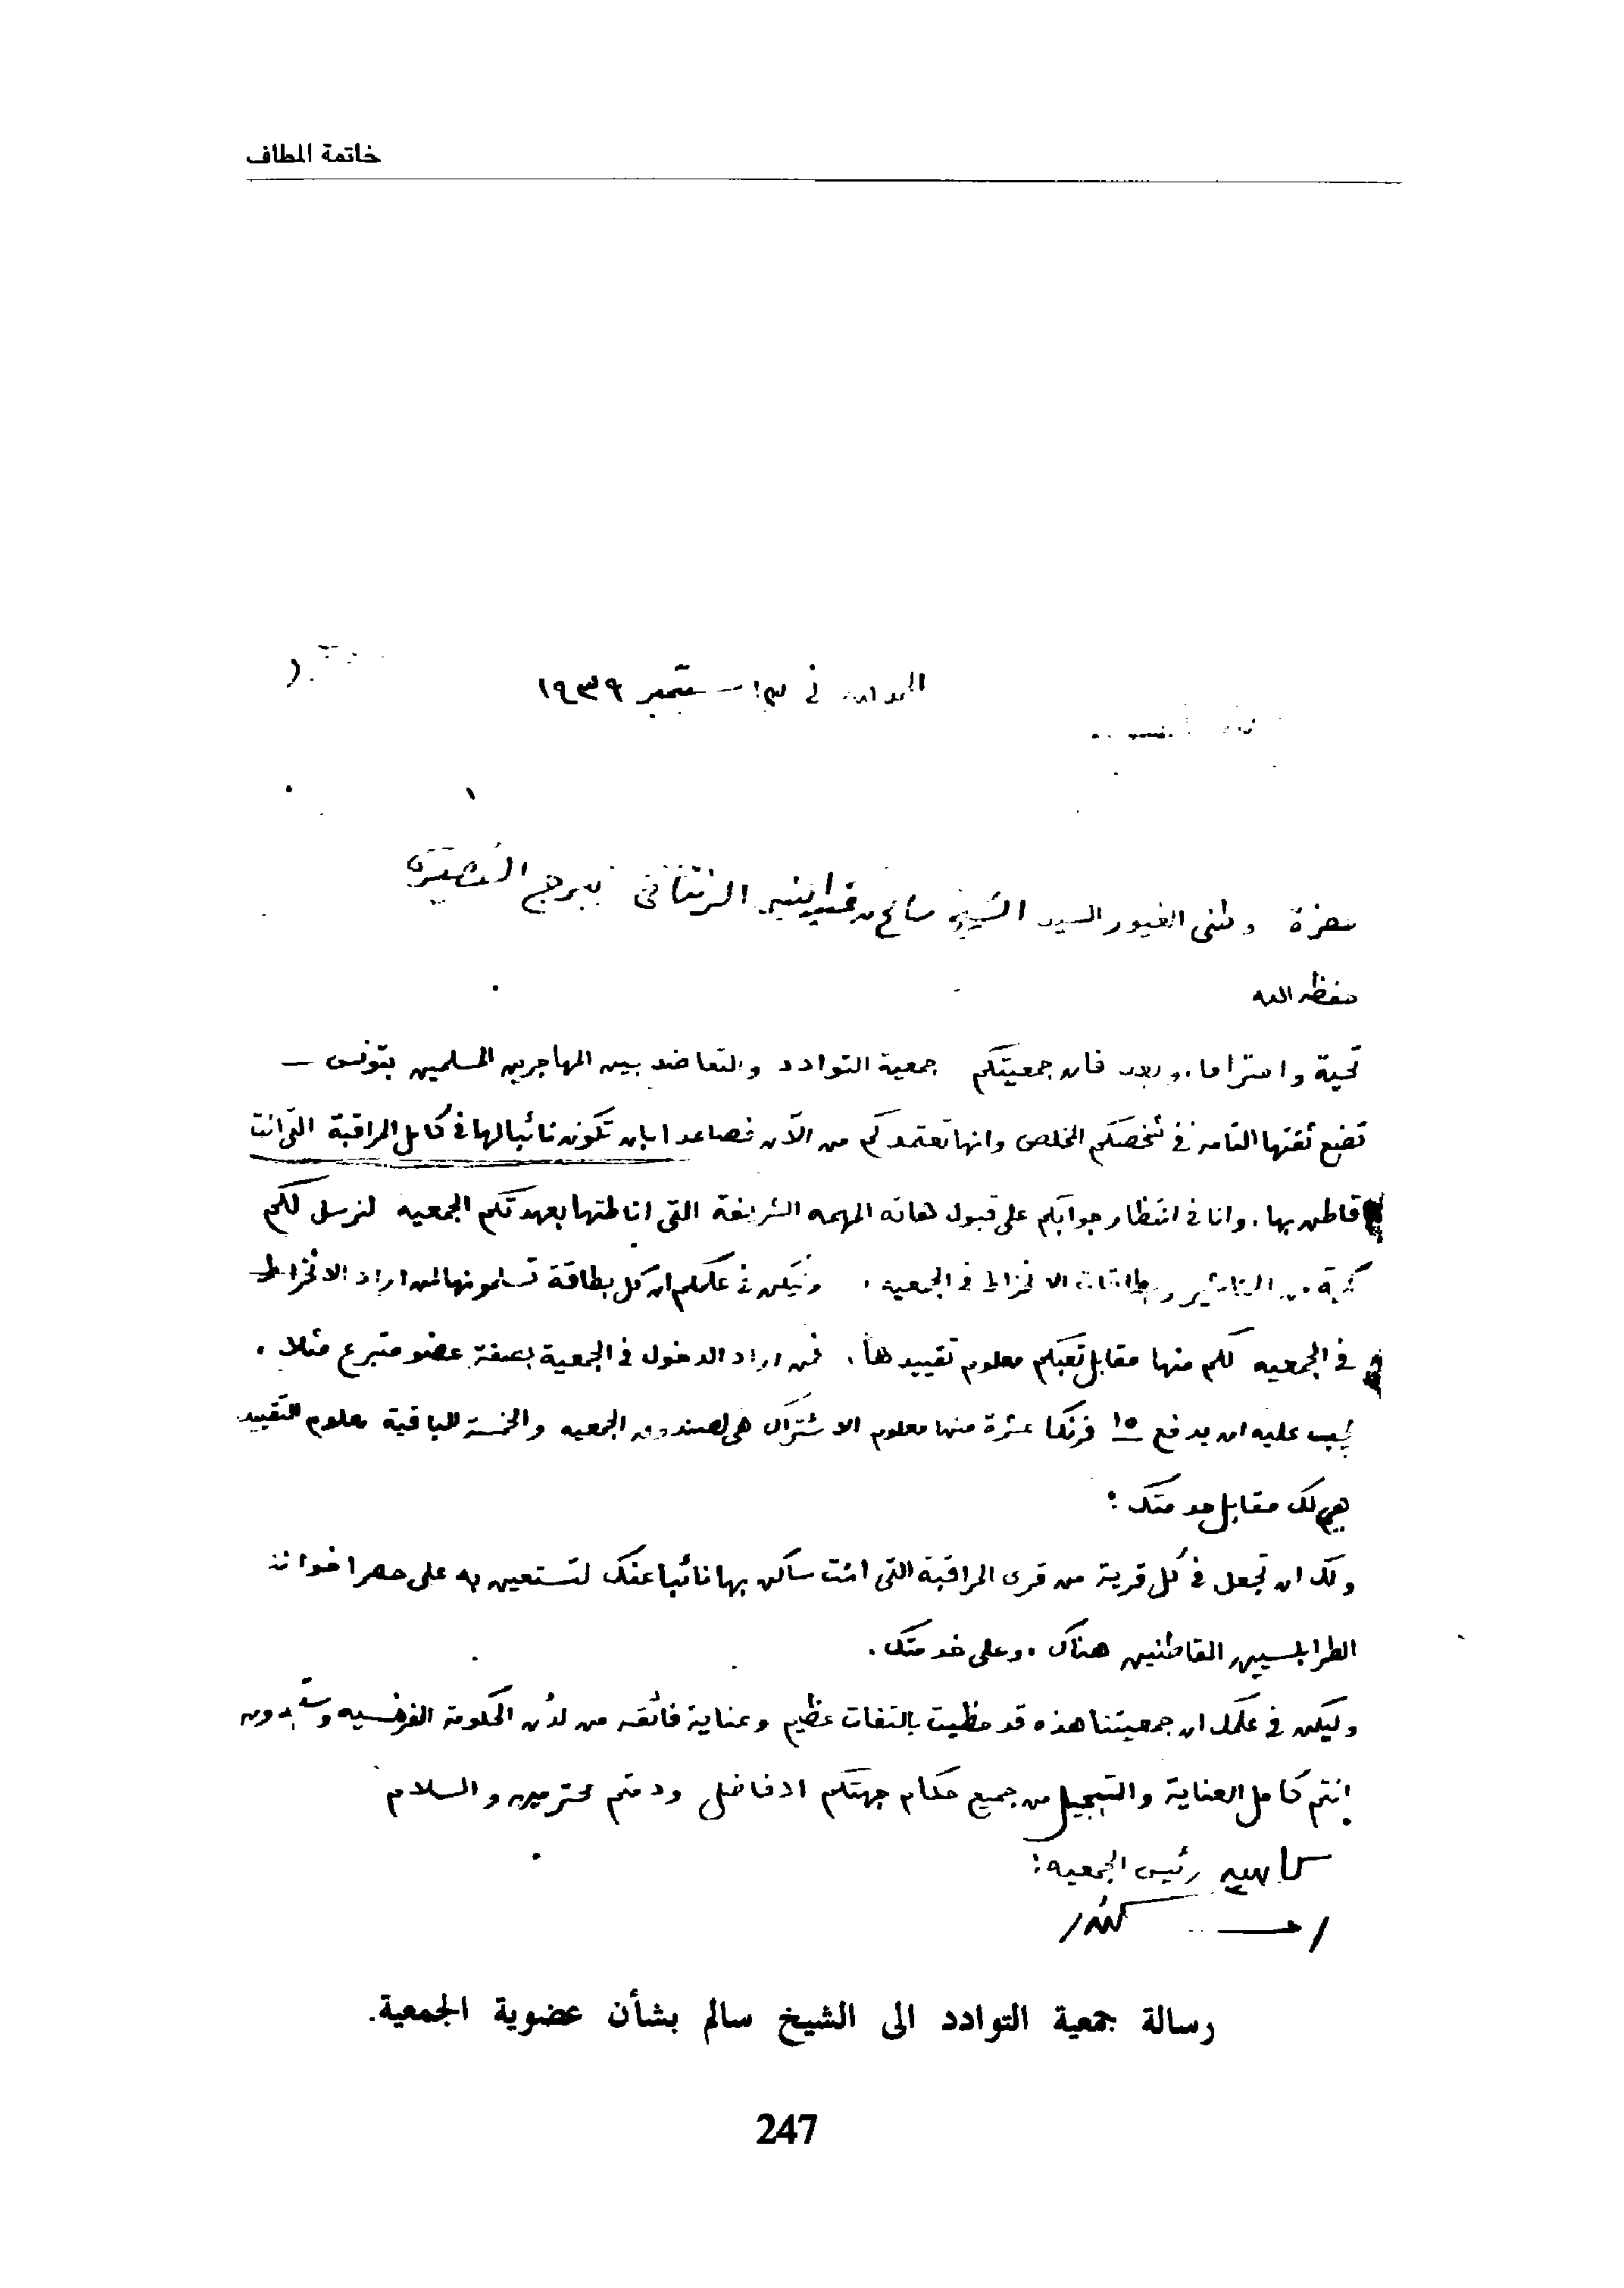 خاتمة المطاف
الحمد لله في ستمبر ١٩٣٩
حضرة وطني الغيور السيد الشيخ سالم بن الزنتاني ببرج
حفظه الله
تحية واحتراما، وبعد فان جمعيتكم جمعية التوادد والتعاضد بين المهاجرين المسلمين بتونس –
تضع ثقتها التامه في شخصكم المخلص وانها تعتمدكم من الآن فصاعدا بان تكون نائبا لها في كامل المراقبة التي انت
قاطن بها. وانا في انتظار جوابكم على قبول هاته المهمه الشريفة التي اناطتها بعهدتكم الجمعيه لنرسل لكم
كمية من التناشير وبطاقات الانخراط في الجمعيه. وليكن في علمكم ان كل بطاقة تسلمونها لمن اراد الانخراط
في الجمعيه لكم منها مقابل تعبكم معلوم تقييدها. فمن اراد الدخول في الجمعية بصفة عضو متبرع مثلا.
يجب عليه ان يدفع ١٥ فرنكا عشرة منها معلوم الاشتراك هي لصندوق الجمعيه والخمسة الباقية معلوم التقييد
هي لك مقابل خدمتك :
ولك ان تجعل في كل قرية من قرى المراقبة التي انت ساكن بها نائبا عنك لتستعين به على حصر اخواننا
الطرابلسيين القاطنين هناك. وعلى خدمتك.
وليكن في علمك ان جمعيتنا هذه قد حظيت بالتفات عظيم وعناية فائقه من لدن الحكومة الفرنسيه وستجدون
انتم كامل العناية والتبجيل من جميع حكام جهتكم الافاضل ودمتم محترمين والسلام
رئيس الجمعيه:
رسالة جمعية التوادد الى الشيخ سالم بشأن عضوية الجمعية.
247